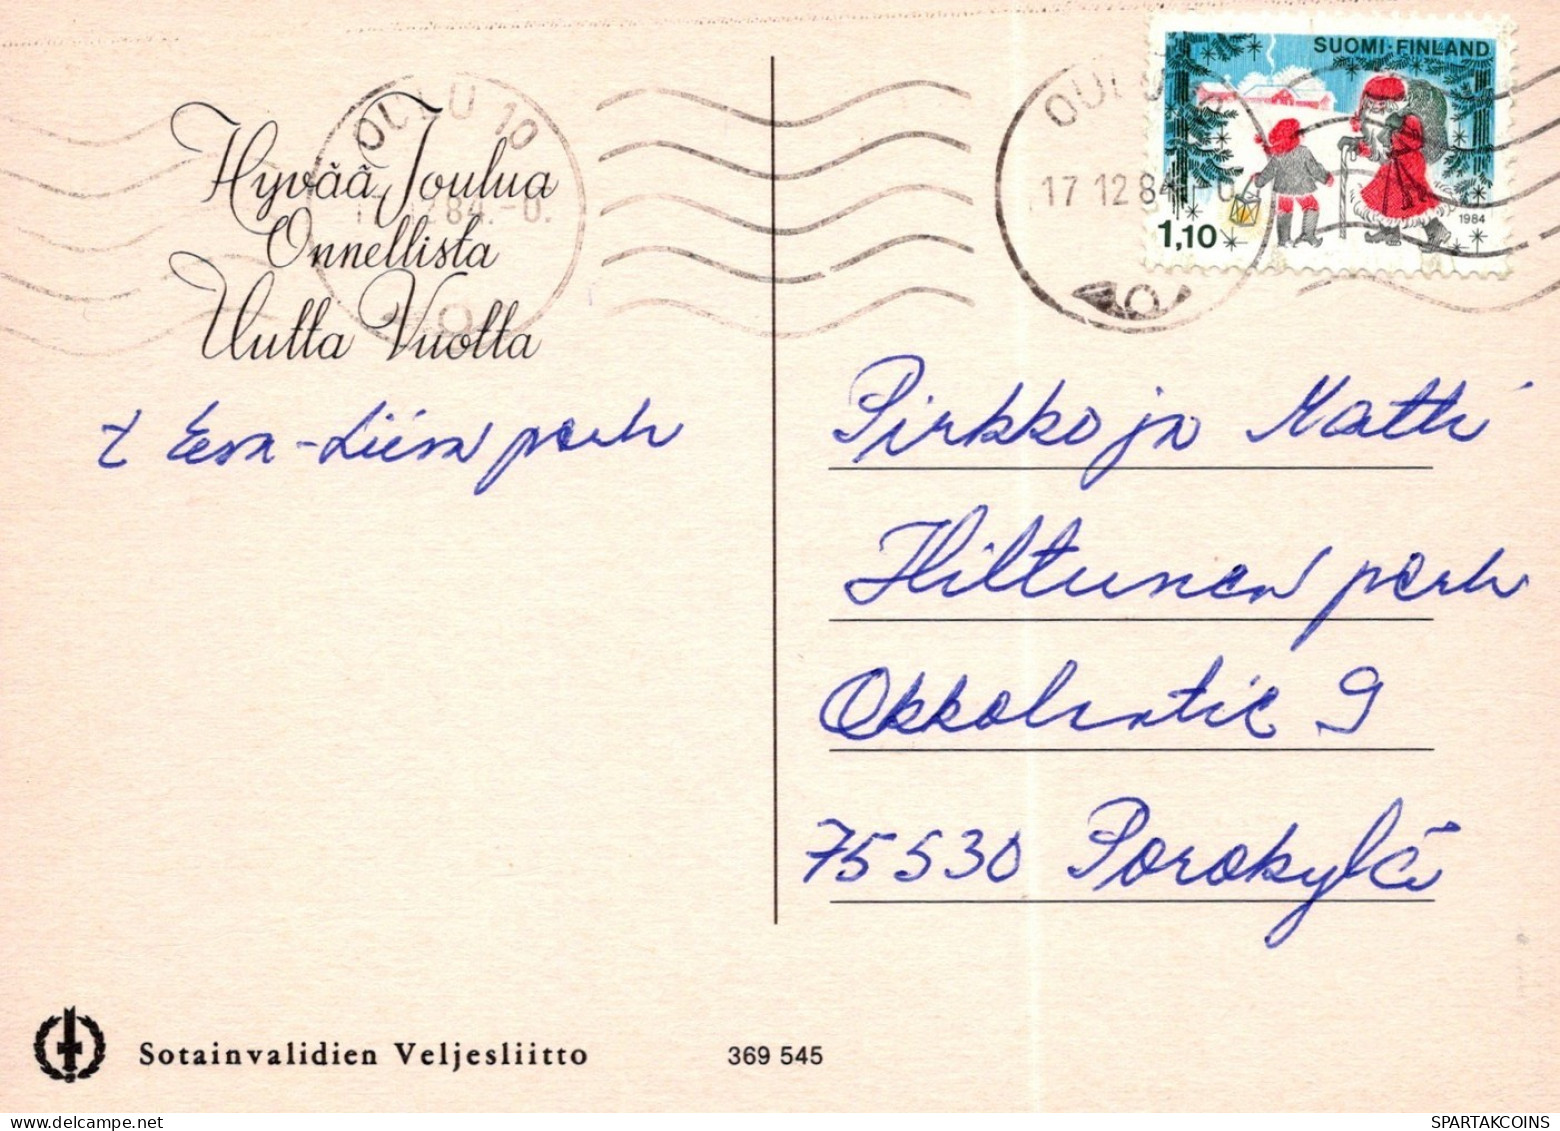 OULU 10
17.12.84.-0.
OULU
17 12 84.-0
SUOMI-FINLAND
1984
1,10
Hyvää Joulua
Onnellista
Uutta Vuotta
t Eeva-Liisan perh
Pirkko ja Matti
Hiltunen perh
9
75530 Porokylä
Sotainvalidien Veljesliitto
369 545
SPARTAKCOINS